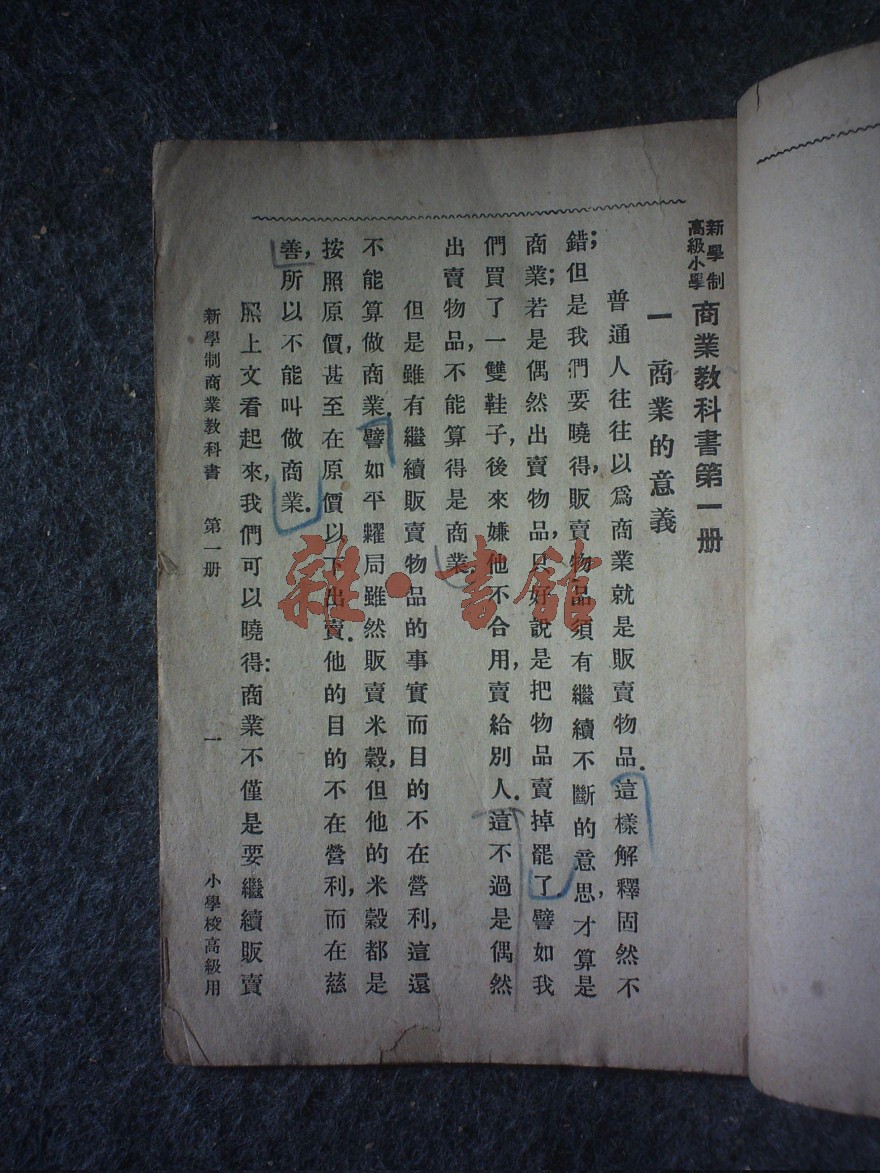 新學制
高級小學
商業教科書第一册
一 商業的意義
普通人往往以爲商業就是販賣物品.這樣解釋固然不
錯;但是我們要曉得,販賣物品須有繼續不斷的意思,才算是
商業;若是偶然出賣物品,只好說是把物品賣掉罷了.譬如我
們買了一雙鞋子,後來嫌他不合用,賣給別人.這不過是偶然
出賣物品,不能算得是商業.
但是雖有繼續販賣物品的事實而目的不在營利,這還
不能算做商業.譬如平糶局雖然販賣米穀,但他的米穀都是
按照原價,甚至在原價以下出賣.他的目的不在營利,而在慈
善,所以不能叫做商業.
照上文看起來,我們可以曉得:商業不僅是要繼續販賣
新學制商業教科書 第一册 一 小學校高級用
雜·書館